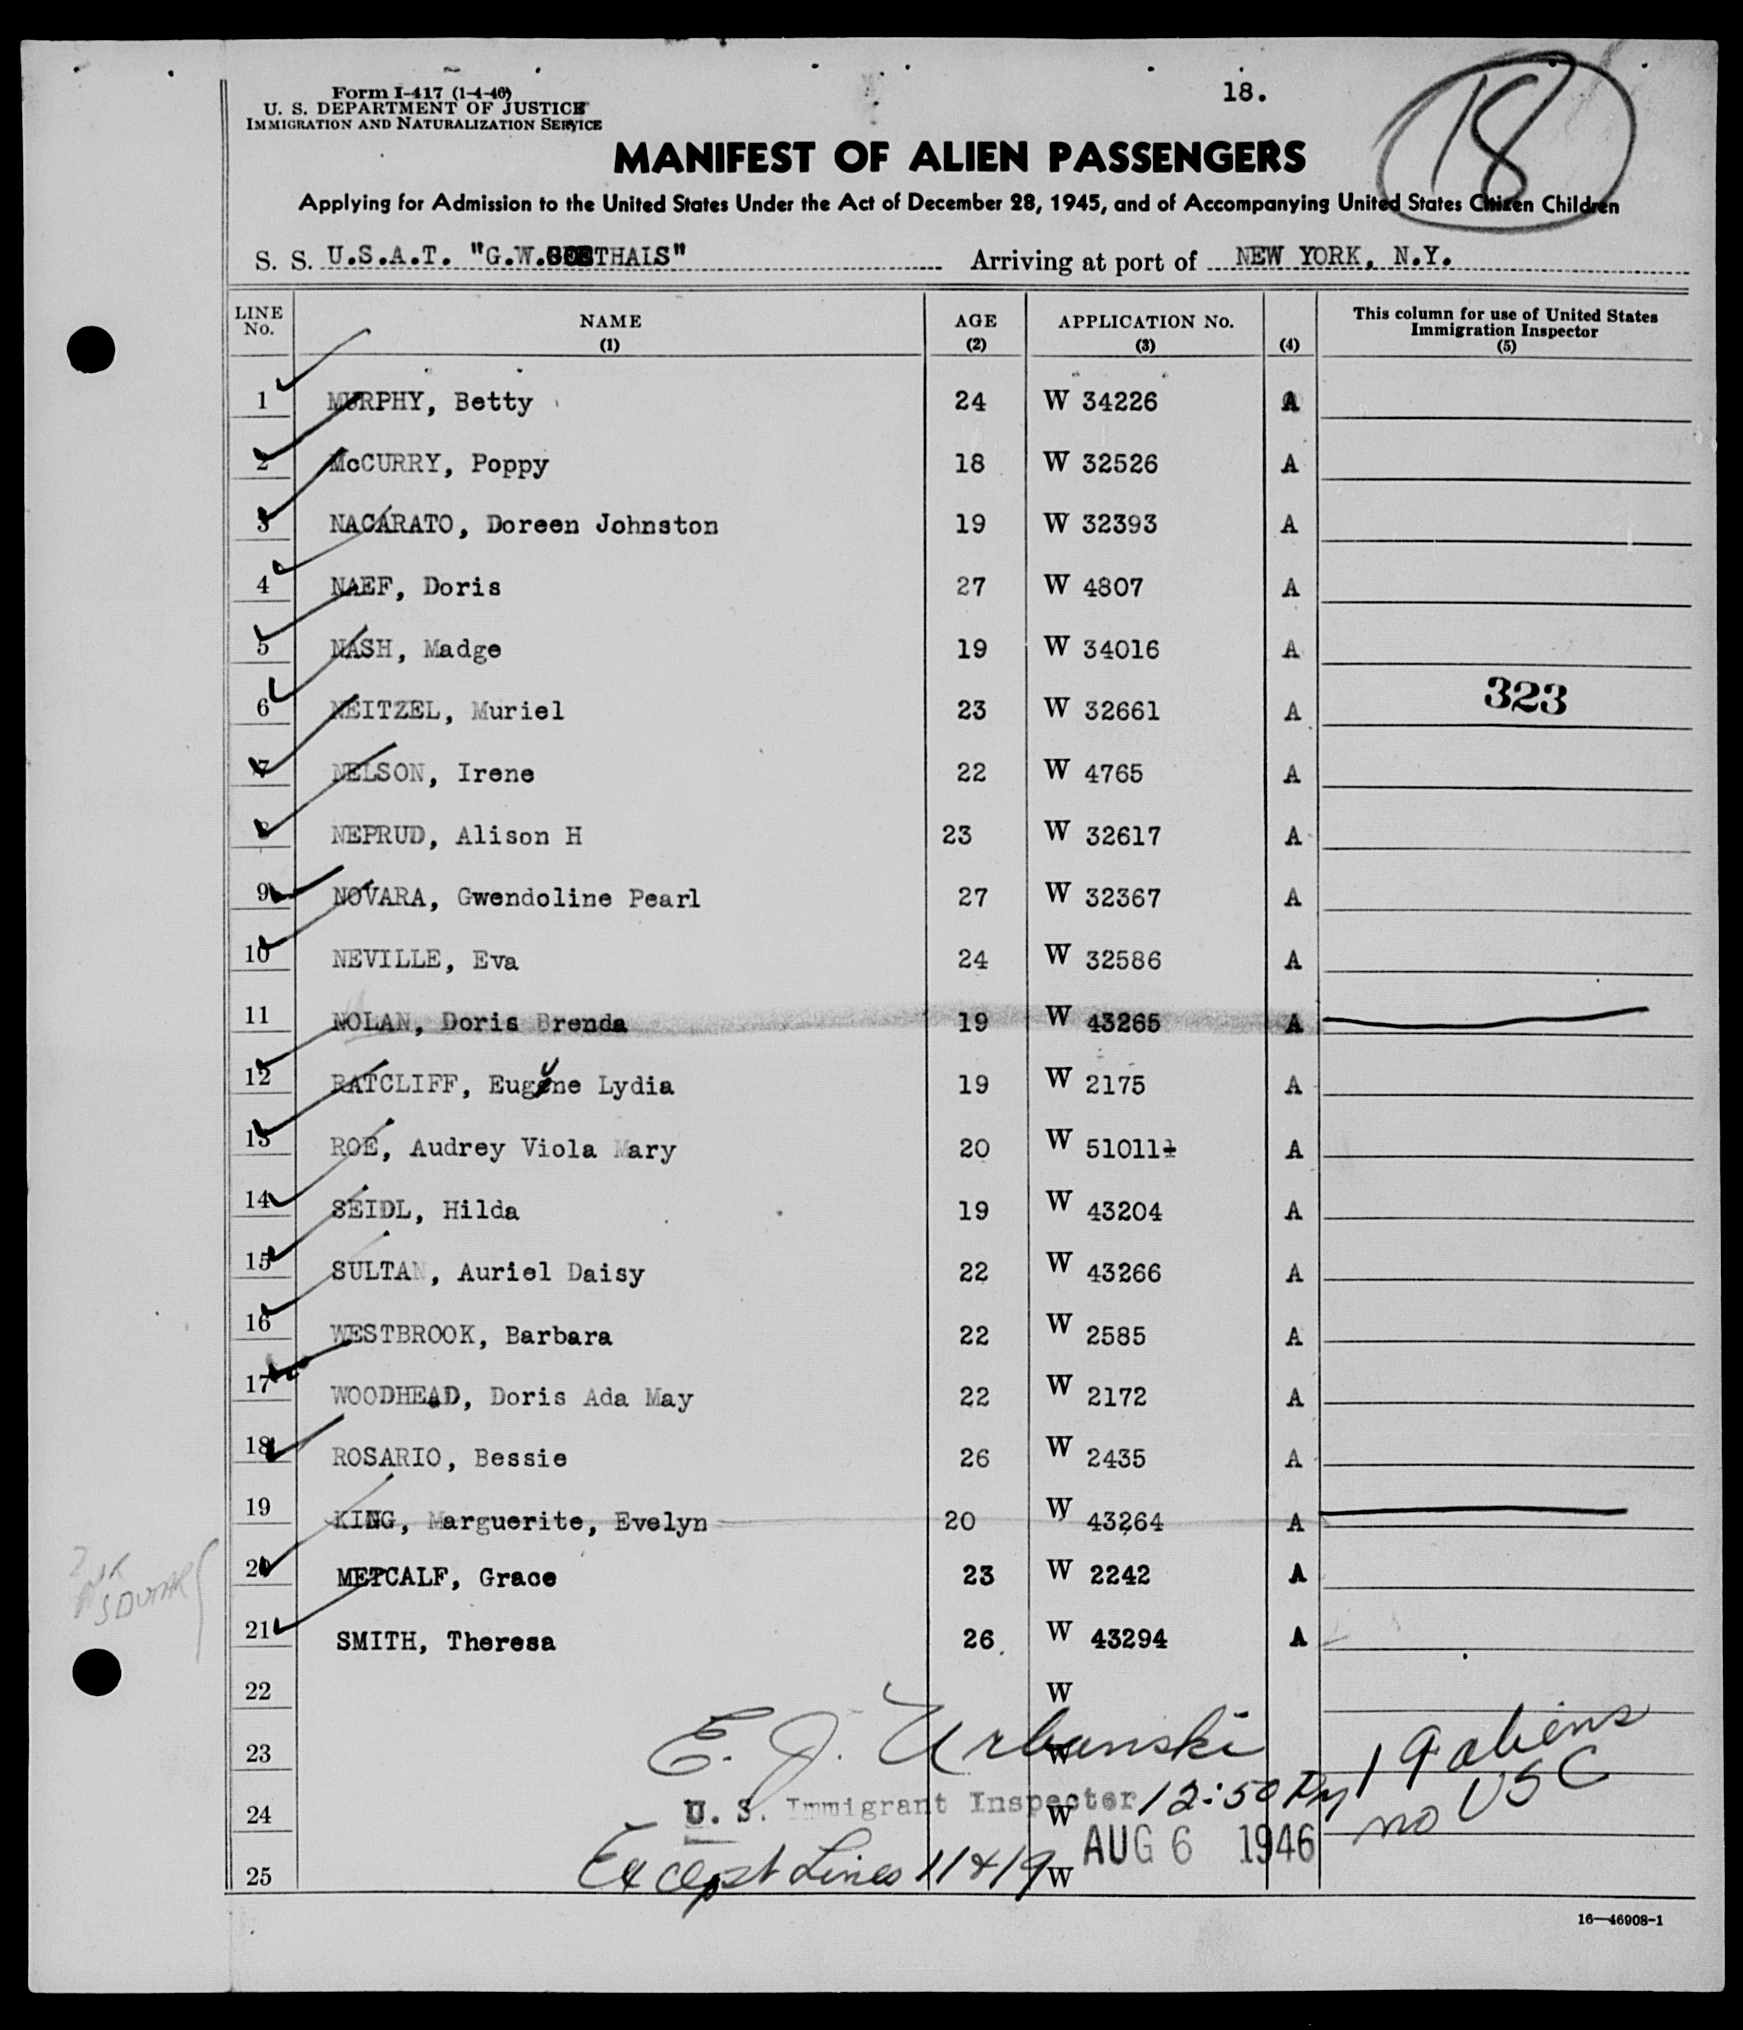 Form I-417 (1-4-46)
U. S. DEPARTMENT OF JUSTICE
IMMIGRATION AND NATURALIZATION SERVICE
18.
18
MANIFEST OF ALIEN PASSENGERS
Applying for Admission to the United States Under the Act of December 28, 1945, and of Accompanying United States Citizen Children
S. S. U.S.A.T. "G.W.GOETHAIS" Arriving at port of NEW YORK, N.Y.
LINE No. NAME (1) AGE (2) APPLICATION No. (3) (4) This column for use of United States Immigration Inspector (5)
1 MURPHY, Betty 24 W 34226 A
2 McCURRY, Poppy 18 W 32526 A
3 NACARATO, Doreen Johnston 19 W 32393 A
4 NAEF, Doris 27 W 4807 A
5 NASH, Madge 19 W 34016 A
6 NEITZEL, Muriel 23 W 32661 A 323
7 NELSON, Irene 22 W 4765 A
8 NEPRUD, Alison H 23 W 32617 A
9 NOVARA, Gwendoline Pearl 27 W 32367 A
10 NEVILLE, Eva 24 W 32586 A
11 NOLAN, Doris Brenda 19 W 43265 A
12 RATCLIFF, Eugene Lydia 19 W 2175 A
13 ROE, Audrey Viola Mary 20 W 51011 A
14 SEIDL, Hilda 19 W 43204 A
15 SULTAN, Auriel Daisy 22 W 43266 A
16 WESTBROOK, Barbara 22 W 2585 A
17 WOODHEAD, Doris Ada May 22 W 2172 A
18 ROSARIO, Bessie 26 W 2435 A
19 KING, Marguerite, Evelyn 20 W 43264 A
20 METCALF, Grace 23 W 2242 A
21 SMITH, Theresa 26. W 43294 A
22 W
23 E. J. Urbanski W 19 aliens
24 U. S. Immigrant Inspector W 12:50 Pm no USC
25 Except Lines 11 & 19 W AUG 6 1946
16—46908-1